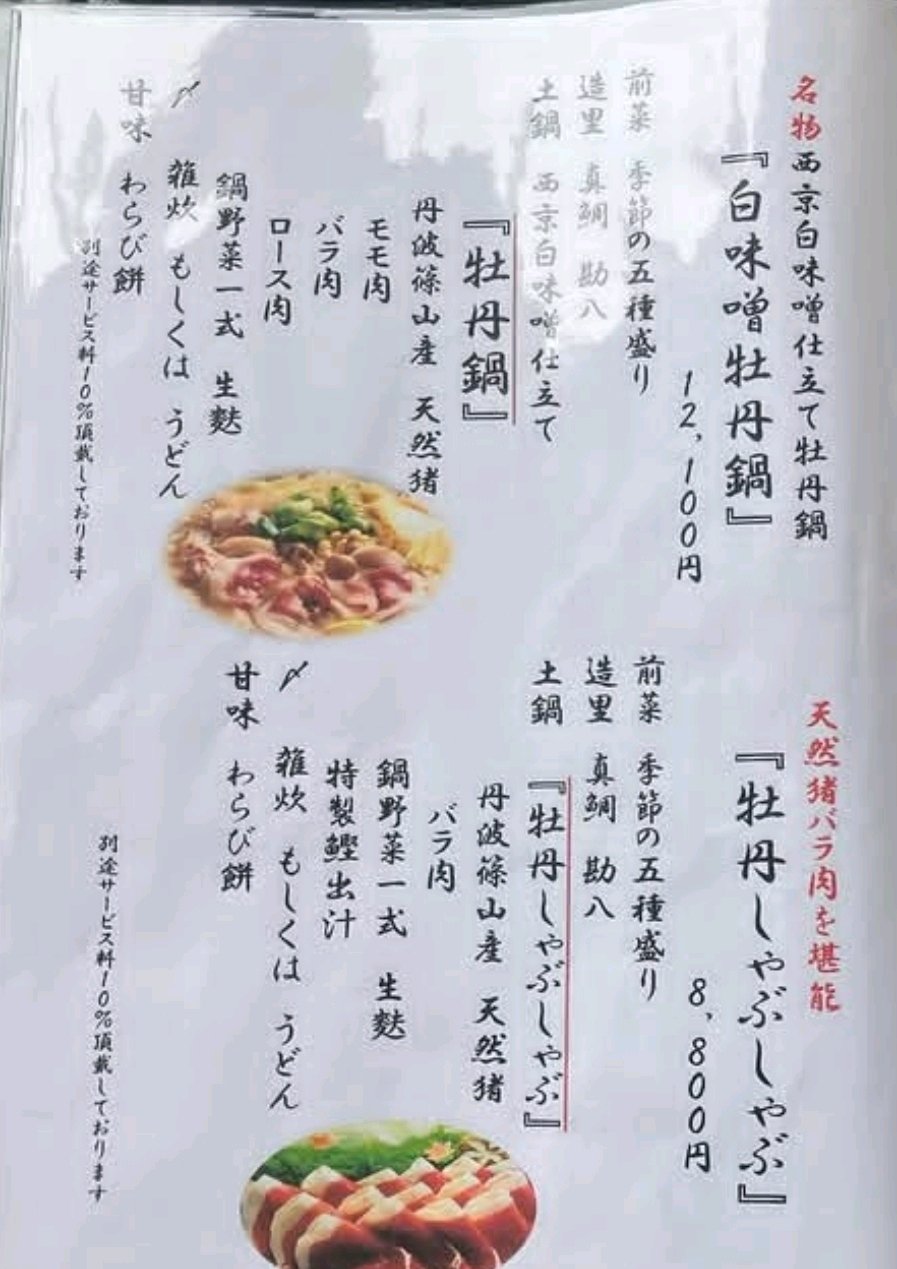 名物西京白味噌仕立て牡丹鍋
『白味噌牡丹鍋』
12,100円
前菜 季節の五種盛り
造里 真鯛 勘八
土鍋 西京白味噌仕立て
『牡丹鍋』
丹波篠山産 天然猪
モモ肉
バラ肉
ロース肉
鍋野菜一式 生麩
〆 雑炊 もしくは うどん
甘味 わらび餅
別途サービス料10%頂戴しております
天然猪バラ肉を堪能
『牡丹しゃぶしゃぶ』
8,800円
前菜 季節の五種盛り
造里 真鯛 勘八
土鍋 『牡丹しゃぶしゃぶ』
丹波篠山産 天然猪
バラ肉
鍋野菜一式 生麩
特製鰹出汁
〆 雑炊 もしくは うどん
甘味 わらび餅
別途サービス料10%頂戴しております